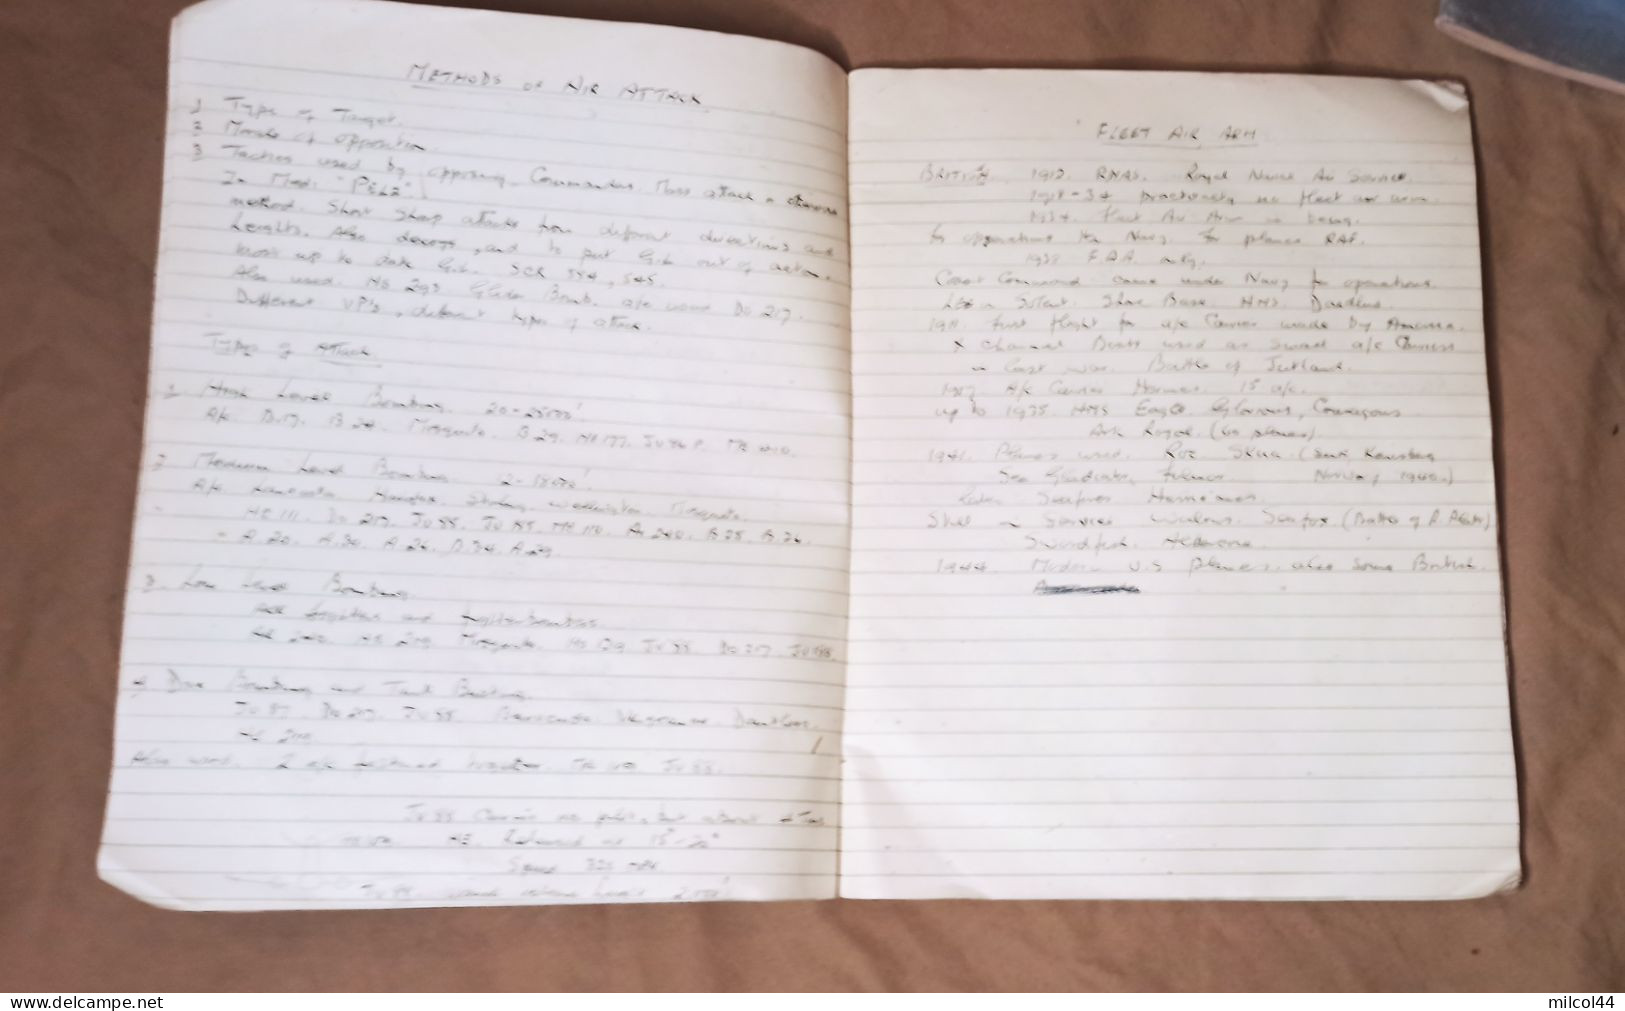 METHODS OF AIR ATTACK
1 Type of Target.
2 Morale of opposition.
3 Tactics used by opposing Commanders. Mass attack
In Med. "PELZ"
method. Short Sharp attacks from different directions and
heights. Also decoys, and to put G.L. out of action.
up to date G.L. SCR 584, 545.
Also used. HS 293 Glider Bomb. a/c used Do 217.
Different VP's, different types of attack.
Types of Attack
1 High Level Bombing. 20-25000'
A/c. B.17. B 24. Mosquito. B 29. HE 177. Ju 86 P. ME 410.
2 Medium Level Bombing. 2-15000'.
A/c. Lancaster. Halifax. Stirling. Wellington. Mosquito.
HE 111. Do 217. Ju 88. Ju 188. ME 110. Ar 240. B 25. B 26.
A 20. A.30. A 26. B.34. A 29.
3. Low Level Bombing.
All fighters and fighter-bombers.
AR 240. HE 219. Mosquito. HS 129 Ju 88 Do 217. Ju 188.
4 Dive Bombing and Tank Busting.
Ju 87. Do 217. Ju 88. Barracuda. Vengeance. Dauntless.
Also used. 2 a/c fastened together. ME 109. Ju 88.
Ju 88 Carries no pilot, but about
HE. Released at 15°-20°
Speed 325 MPH
Ju 88
FLEET AIR ARM
BRITISH 1912. RNAS. Royal Naval Air Service.
1918-34 practically no fleet air arm.
1934. Fleet Air Arm in being.
For operations the Navy. For planes RAF.
1938 F.A.A.
Coast Command came under Navy for operations.
Lee in Solent. Shore Base. HMS. Daedalus.
1911. First flight for a/c Carrier made by America.
x Channel Boats used as small a/c Carriers
in last war. Battle of Jutland.
A/c Carrier Hermes. 15 a/c.
up to 1935. HMS Eagle. Glorious, Courageous
Ark Royal. (60 planes).
1941. Planes used. Roc. Skua. (Sunk Konisberg
Sea Gladiator, Fulmar. Norway 1940.)
Later Seafires Hurricanes.
Still in Service Walrus. Seafox. (Battle of R. Plate)
Swordfish. Albacore.
1944. Modern U.S planes, also some British.
milcol44
www.delcampe.net